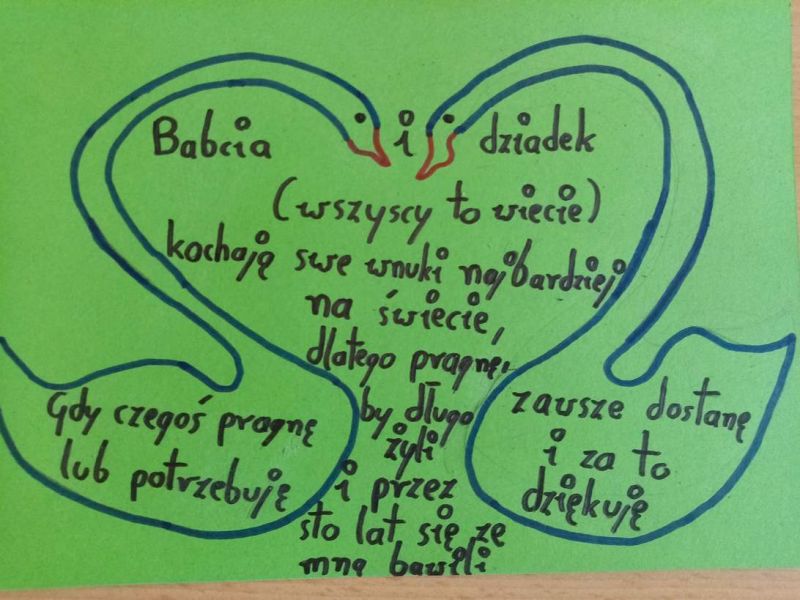 Babcia i dziadek
(wszyscy to wiecie)
kochają swe wnuki najbardziej
na świecie,
dlatego pragnę,
by długo
żyli
i przez
sto lat się ze
mną bawili
Gdy czegoś pragnę
lub potrzebuję
zawsze dostanę
i za to
dziękuję